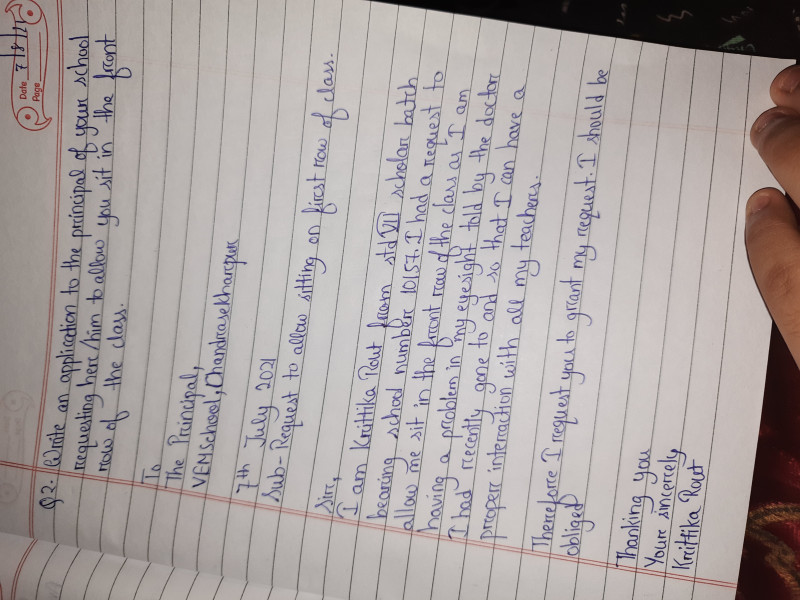 Date 7/8/21
Page
Q2. Write an application to the principal of your school
requesting her/him to allow you sit in the front
row of the class.
To
The Principal,
VEMSchool, Chandrasekharpur
7th July 2021
Sub- Request to allow sitting on first row of class.
Sir,
I am Krittika Rout from std VII scholar batch
bearing school number 10157. I had a request to
allow me sit in the front row of the class as I am
having a problem in my eyesight told by the doctor
I had recently gone to and so that I can have a
proper interaction with all my teachers.
Therefore I request you to grant my request. I should be
obliged
Thanking you
Your sincerely
Krittika Rout